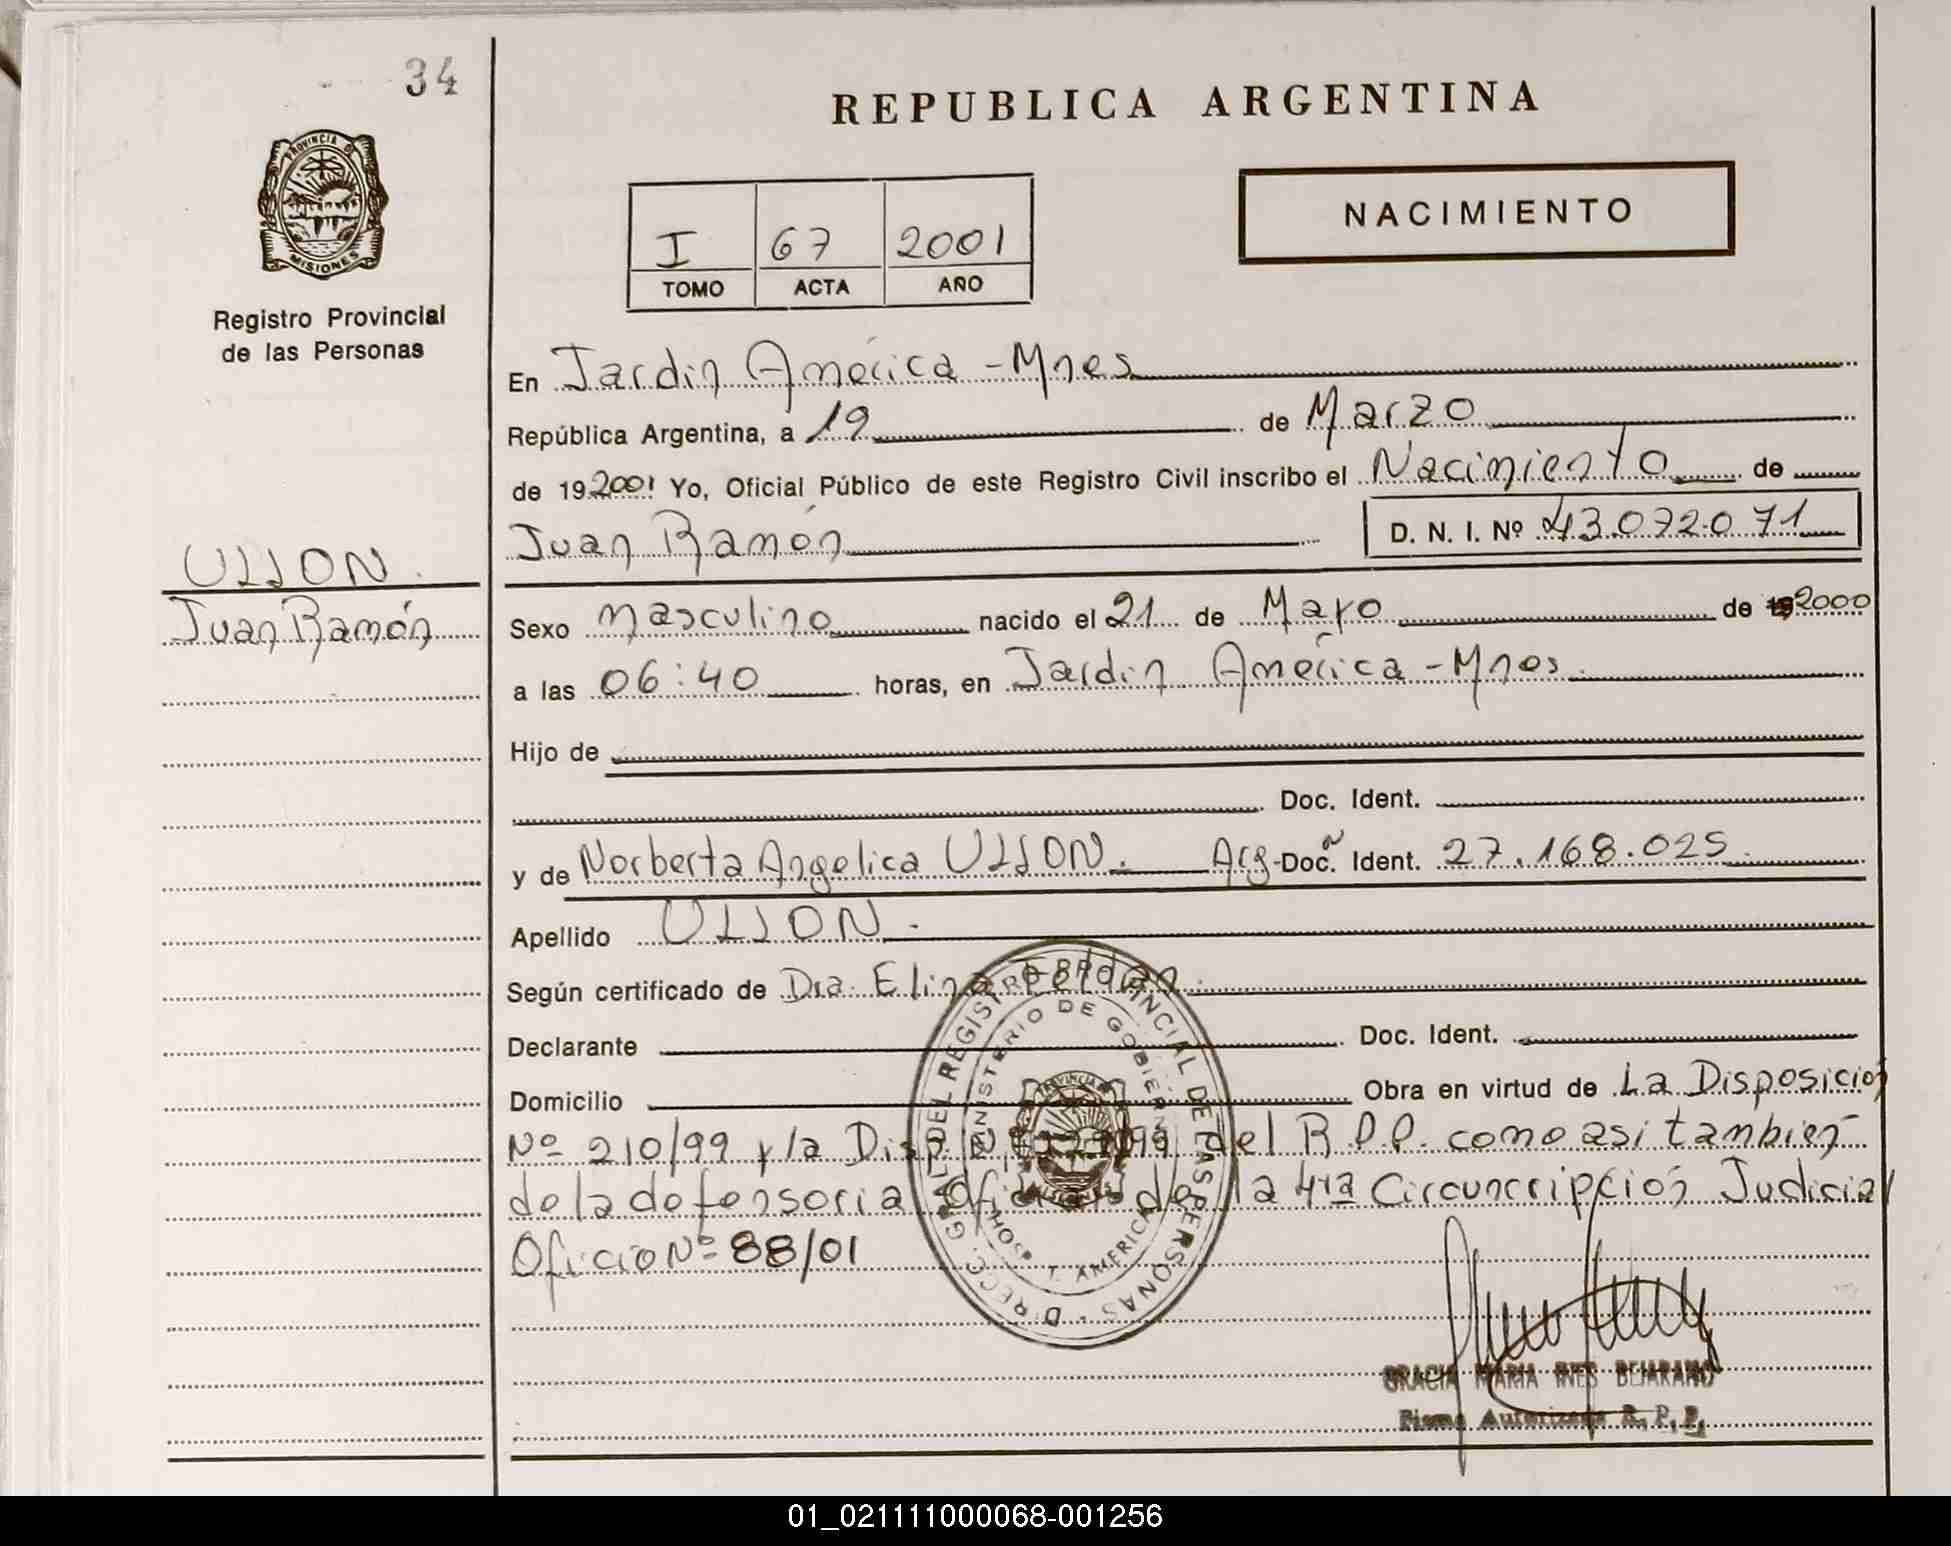 34
REPUBLICA ARGENTINA
PROVINCIA DE
MISIONES
Registro Provincial
de las Personas
NACIMIENTO
I 67 2001
TOMO ACTA AÑO
En Jardin América - Mnes
República Argentina, a 19 de Marzo
de 19 2001 Yo, Oficial Público de este Registro Civil inscribo el Nacimiento de
Juan Ramón D. N. I. Nº 43.072.071
ULJON.
Juan Ramón
Sexo masculino nacido el 21 de Mayo de 2000
a las 06:40 horas, en Jardin América - Mnes.
Hijo de
Doc. Ident.
y de Norberta Angelica ULJON. Arg-Doc. Ident. 27.168.025.
Apellido ULJON.
Según certificado de Dra. Elina
Declarante Doc. Ident.
Domicilio Obra en virtud de La Disposición
Nº 210/99 y la Disp. del R.P.P. como asi tambien
de la defensoria Oficial de la 4ta Circunscripción Judicial
Oficio Nº 88/01
DIRECC. GRAL DEL REGISTRO PROVINCIAL DE LAS PERSONAS
MINISTERIO DE GOBIERNO
J. AMERICA
GRACIA MARIA INES BEJARANO
Firma Autorizada R. P. P.
01_021111000068-001256